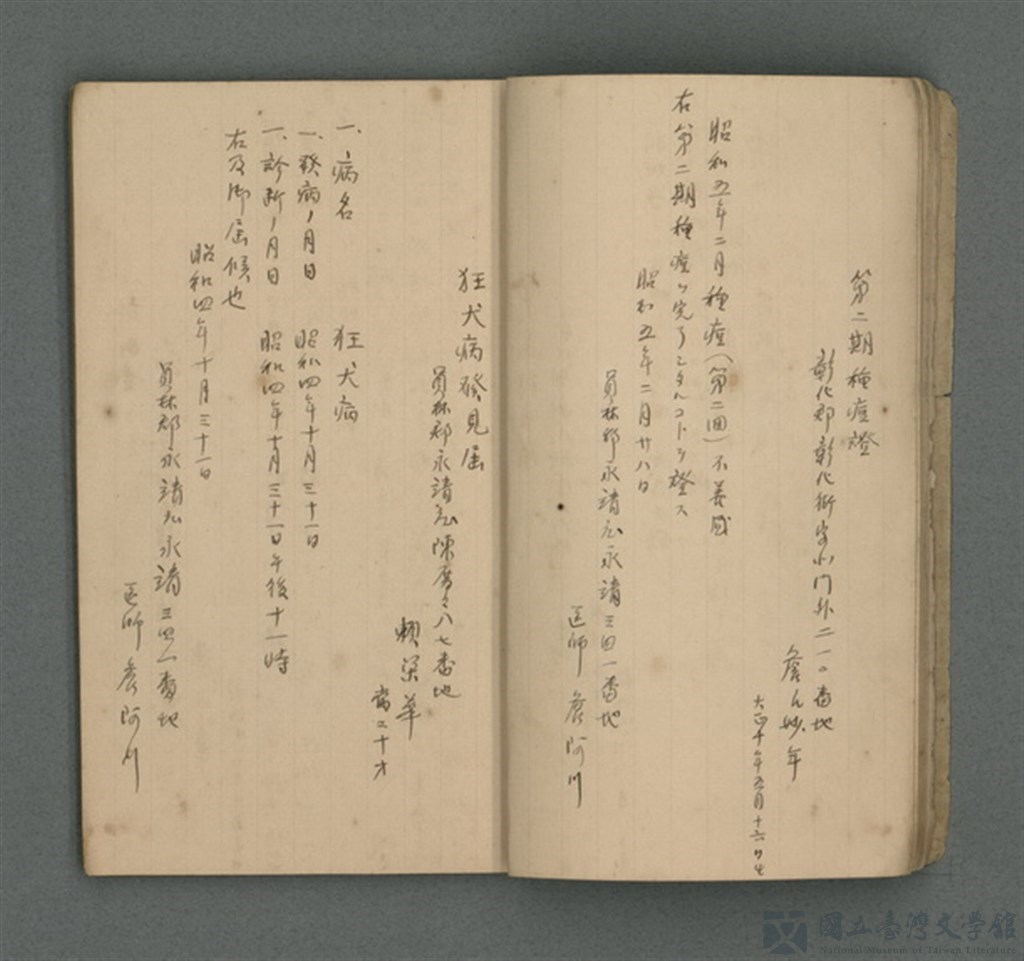 第二期種痘證
彰化郡彰化街字北門外二一〇番地
詹氏妙年
大正十年五月十六日生
昭和五年二月種痘(第二回)不善感
右第二期種痘ヲ完了シタルコトヲ證ス
昭和五年二月廿八日
員林郡永靖庄永靖三四一番地
医師 詹阿川
狂犬病發見届
員林郡永靖庄陳厝厝八七番地
賴 華
當二十才
一、病名 狂犬病
一、發病ノ月日 昭和四年十月三十一日
一、診断ノ月日 昭和四年十月三十一日午後十一時
右及御届候也
昭和四年十月三十一日
員林郡永靖庄永靖三四一番地
医師 詹阿川
國立臺灣文學館
National Museum of Taiwan Literature